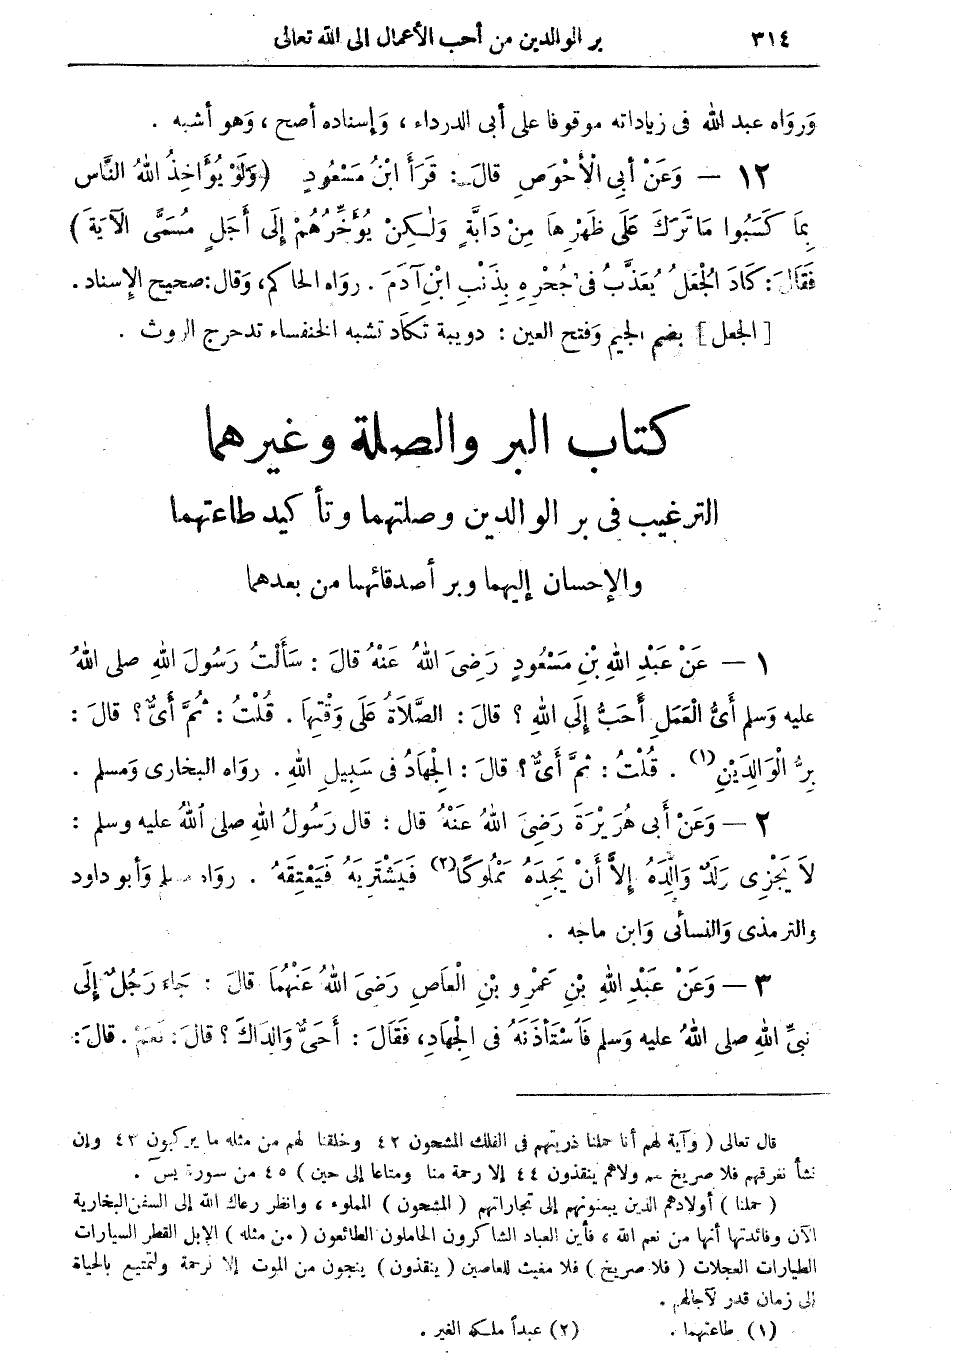 ٣١٤ بر الوالدين من أحب الأعمال إلى الله تعالى
وَرَوَاه عبد الله فى زياداته موقوفا على أبى الدرداء ، وَإسناده أصح ، وَهو أشبه .
١٢ — وَعَنْ أبِى الْأَحْوَصِ قالَ : قَرَأَ ابْنُ مَسْعُودٍ (وَلَوْ يُؤَاخِذُ اللهُ النَّاسَ
بِمَا كَسَبُوا مَا تَرَكَ عَلَى ظَهْرِهَا مِنْ دَابَّةٍ وَلٰكِنْ يُؤَخِّرُهُمْ إِلَى أَجَلٍ مُسَمًّى الآيَةَ )
فَقَالَ : كَادَ الْجُعَلُ يُعَذَّبُ فى جُحْرِهِ بِذَنْبِ ابْنِ آدَمَ . روَاه الحاكم، وَقال : صحيح الإسناد .
[ الجعل ] بضم الجيم وَفتح العين : دويبة تكاد تشبه الخنفساء تدحرج الروث .
كتاب البر والصلة وغيرهما
الترغيب فى بر الوالدين وصلتهما وتأكيد طاعتهما
والإحسان إليهما وبر أصدقائهما من بعدهما
١ — عَنْ عَبْدِ اللهِ بْنِ مَسْعُودٍ رَضِىَ اللهُ عَنْهُ قالَ : سَأَلْتُ رَسُولَ اللهِ صلى اللهُ
عليه وَسلم أَىُّ الْعَمَلِ أَحَبُّ إِلَى اللهِ ؟ قالَ : الصَّلَاةُ عَلَى وَقْتِهَا . قُلْتُ : ثُمَّ أَىٌّ ؟ قالَ :
بِرُّ الْوَالِدَيْنِ (١) . قُلْتُ : ثُمَّ أَىٌّ ؟ قالَ : الْجِهَادُ فى سَبِيلِ اللهِ . روَاه البخارى وَمسلم .
٢ — وَعَنْ أَبى هُرَيْرَةَ رَضِىَ اللهُ عَنْهُ قال : قال رَسُولُ اللهِ صلى اللهُ عليه وسلم :
لاَ يَجْزِى وَلَدٌ وَالِدَهُ إِلاَّ أَنْ يَجِدَهُ مَمْلُوكًا (٢) فَيَشْتَرِيَهُ فَيَعْتِقَهُ . روَاه مسلم وَأبو داود
والترمذى وَالنسائى وَابن ماجه .
٣ — وَعَنْ عَبْدِ اللهِ بْنِ عَمْرِو بْنِ الْعَاصِ رَضِىَ اللهُ عَنْهُمَا قالَ : جَاءَ رَجُلٌ إِلَى
نَبِىِّ اللهِ صلى اللهُ عليه وَسلم فَاسْتَأْذَنَهُ فى الْجِهَادِ، فَقَالَ : أَحَىٌّ وَالِدَاكَ ؟ قالَ : نَعَمْ . قالَ :
قال تعالى ( وآية لهم أنا حملنا ذريتهم فى الفلك المشحون ٤٢ وخلقنا لهم من مثله ما يركبون ٤٣ وإن
نشأ نغرقهم فلا صريخ لهم ولاهم ينقذون ٤٤ إلا رحمة منا ومتاعا إلى حين ) ٤٥ من سورة يس .
( حملنا ) أولادهم الذين يبعثونهم إلى تجاراتهم ( المشحون ) المملوء ، وانظر رعاك الله إلى السفن البخارية
الآن وفائدتها أنها من نعم الله ، فأين العباد الشاكرون الحاملون الطائعون ( من مثله ) الإبل القطر السيارات
الطيارات العجلات ( فلا صريخ ) فلا مغيث للعاصين ( ينقذون ) ينجون من الموت إلا لرحمة ولتمتيع بالحياة
إلى زمان قدر لآجالهم .
(١) طاعتهما . (٢) عبداً ملكه الغير .